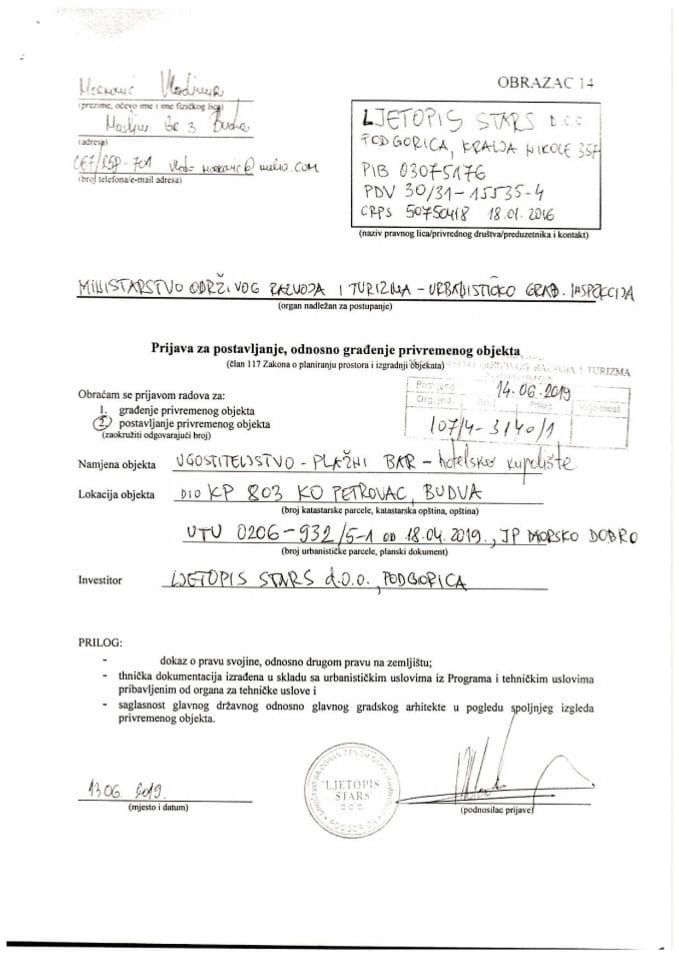 OBRAZAC 14
Vladimir
(prezime, očevo ime i ime fizičkog lica)
3 Budva
(adresa)
(broj telefona/e-mail adresa)
LJETOPIS STARS D.O.O.
PODGORICA, KRALJA NIKOLE
PIB 03075176
PDV 30/31-15535-4
CRPS 50750418 18.01.2016
(naziv pravnog lica/privrednog društva/preduzetnika i kontakt)
MINISTARSTVO ODRŽIVOG RAZVOJA I TURIZMA - URBANISTIČKO GRAĐ. INSPEKCIJA
(organ nadležan za postupanje)
Prijava za postavljanje, odnosno građenje privremenog objekta
(član 117 Zakona o planiranju prostora i izgradnji objekata)
RAZVOJA I TURIZMA
14.06.2019
Obraćam se prijavom radova za:
1. građenje privremenog objekta
2. postavljanje privremenog objekta
107/4-3140/1
(zaokružiti odgovarajući broj)
Namjena objekta UGOSTITELJSTVO - PLAŽNI BAR - hotelsko kupalište
Lokacija objekta DIO KP 803 KO PETROVAC, BUDVA
(broj katastarske parcele, katastarska opština, opština)
UTU 0206-932/5-1 OD 18.04.2019., JP MORSKO DOBRO
(broj urbanističke parcele, planski dokument)
Investitor LJETOPIS STARS d.o.o., PODGORICA
PRILOG:
- dokaz o pravu svojine, odnosno drugom pravu na zemljištu;
- thnička dokumentacija izrađena u skladu sa urbanističkim uslovima iz Programa i tehničkim uslovima
pribavljenim od organa za tehničke uslove i
- saglasnost glavnog državnog odnosno glavnog gradskog arhitekte u pogledu spoljnjeg izgleda
privremenog objekta.
LJETOPIS
STARS
13.06.2019.
(mjesto i datum)
(podnosilac prijave)